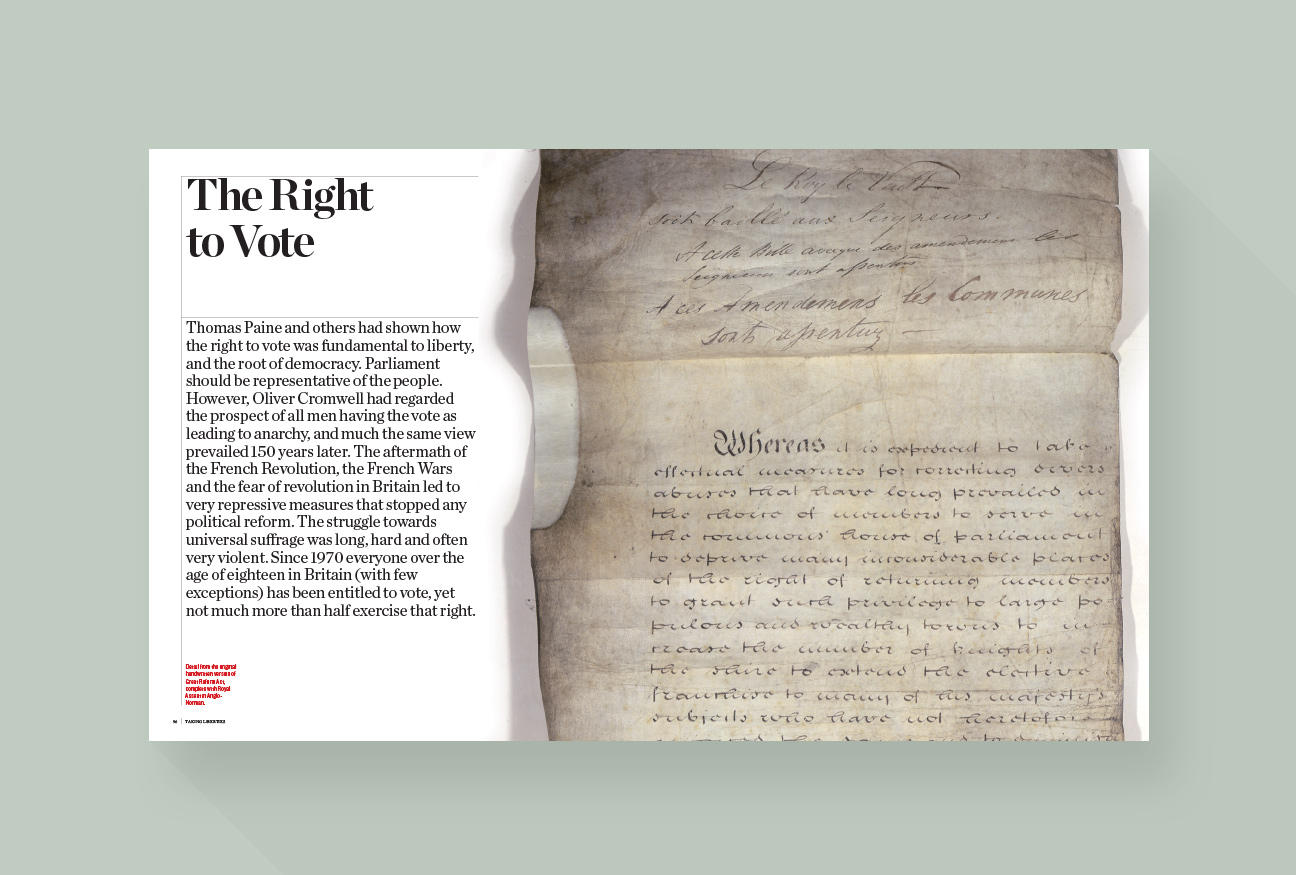 The Right
to Vote
Thomas Paine and others had shown how
the right to vote was fundamental to liberty,
and the root of democracy. Parliament
should be representative of the people.
However, Oliver Cromwell had regarded
the prospect of all men having the vote as
leading to anarchy, and much the same view
prevailed 150 years later. The aftermath of
the French Revolution, the French Wars
and the fear of revolution in Britain led to
very repressive measures that stopped any
political reform. The struggle towards
universal suffrage was long, hard and often
very violent. Since 1970 everyone over the
age of eighteen in Britain (with few
exceptions) has been entitled to vote, yet
not much more than half exercise that right.
Detail from the original
handwritten version of
Great Reform Act,
complete with Royal
Assent in Anglo-
Norman.
TAKING LIBERTIES
Le Roy le Veult
soit baillé aux Seigneurs.
A cette Bille avecque des amendemens les
Seigneurs sont assentus
A ces Amendemens les Communes
sont assentuz
Whereas it is expedient to take
effectual measures for correcting divers
abuses that have long prevailed in
the choice of members to serve in
the commons house of parliament
to deprive many inconsiderable places
of the right of returning members
to grant such privilege to large po
pulous and wealthy towns to in
crease the number of knights of
the shire to extend the elective
franchise to many of his majestys
subjects who have not heretofore